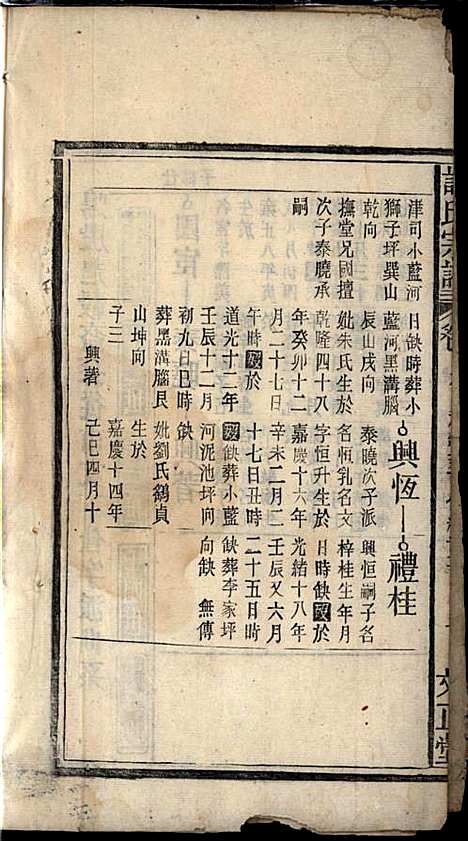 許氏宗譜 卷
津司小藍河 日缺時葬小 興恆 禮桂
獅子坪巽山 藍河黑溝腦
乾向 辰山戌向 泰曉次子派 興恒嗣子名
撫堂兄國擅 妣朱氏生於 名恒乳名文 梓桂生年月
次子泰曉承 乾隆四十八 字恒升生於 日時缺歿於
嗣 年癸卯十二 嘉慶十六年 光緒十八年
月二十七日 辛未二月二 壬辰又六月
午時歿於 十七日丑時 二十五月時
道光十二年 歿缺葬小藍 缺葬李家坪
壬辰十二月 河泥池坪向 向缺 無傳
初九日巳時 缺
葬黑溝腦艮 妣劉氏鶴貞
山坤向 生於
子三 嘉慶十四年
興著 己巳四月十